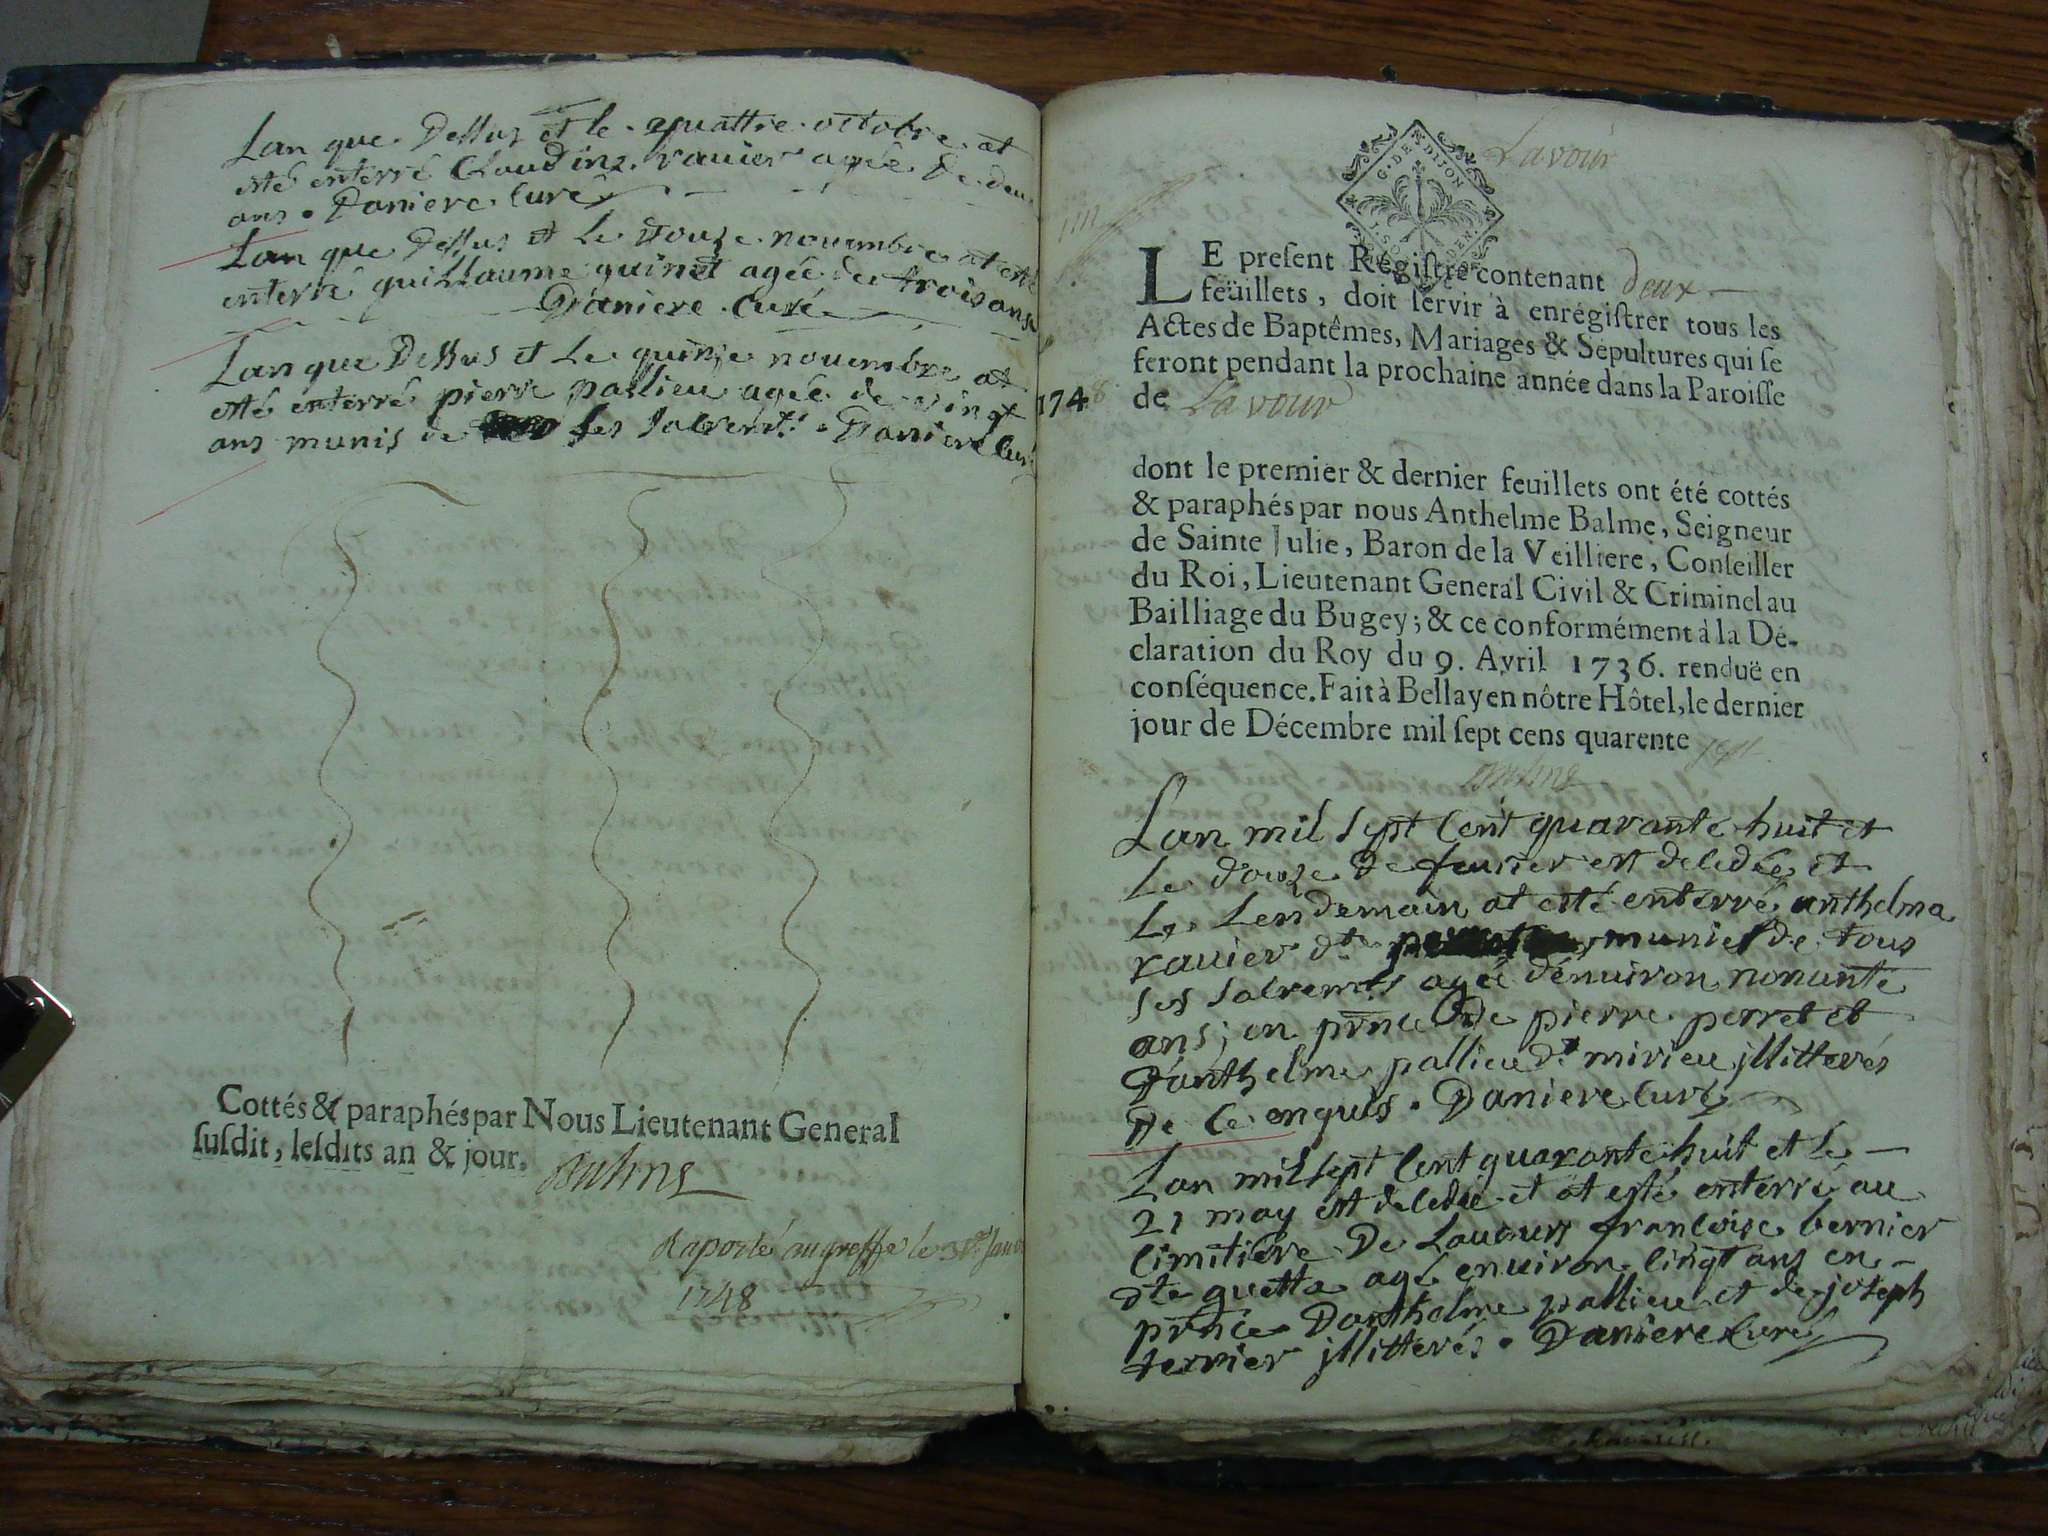 Lan que Dessus et le quattre octobre at
esté enterré Claudine ravier agée de deux
ans . Daniere Curé
Lan que Dessus et Le Douze nouembre at esté
enterré guillaume guinet agée de trois ans
Daniere . Curé
Lan que Dessus et Le quinze nouembre at
esté enterré pierre pallieu agée de vingt
ans munis de ses sacremts . Daniere Curé
Cottés & paraphés par Nous Lieutenant General
susdit, lesdits an & jour.
Raporté au greffe le
1748
Lavour
G. DE DIJON
LE present Régistre contenant deux
feüillets, doit servir à enrégistrer tous les
Actes de Baptêmes, Mariages & Sépultures qui se
feront pendant la prochaine année dans la Paroisse
1748 de Lavour
dont le premier & dernier feuillets ont été cottés
& paraphés par nous Anthelme Balme, Seigneur
de Sainte Julie, Baron de la Veilliere, Conseiller
du Roi, Lieutenant General Civil & Criminel au
Bailliage du Bugey; & ce conformément à la Dé-
claration du Roy du 9. Avril 1736. renduë en
conséquence. Fait à Bellay en nôtre Hôtel, le dernier
jour de Décembre mil sept cens quarente sept
Lan mil sept Cent quarante huit et
Le douze de feurier est deledée et
Le Lendemain at esté enterré anthelma
ravier dte munies de tous
ses sacremts agée dénuiron nonante
ans; en prnce de pierre perret et
Danthelme pallieu dt mirieu jllitterés
De Ce enquis . Daniere Curé
Lan mil sept Cent quarante huit et Le
21 may est deledée et at esté enterré au
Cimitiére De Lauours francoise bernier
dte guetta agé enuiron Cinqt ans en
prnce Danthelme pallieu et de joseph
terrier jllitterés . Daniere Curé